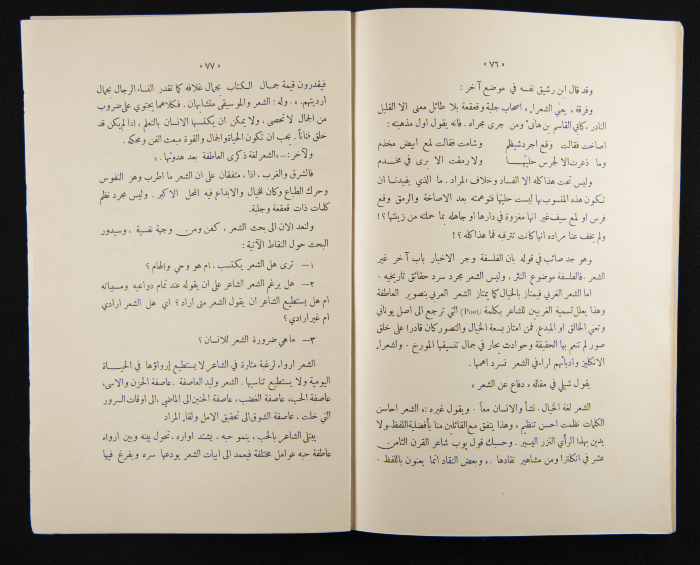 « ٧٦ »
وقد قال ابن رشيق نفسه في موضع آخر :
وفرقة « يعني الشعراء » اصحاب جلبة وقعقعة بلا طائل معنى الا القليل
النادر ، كابي القاسم بن هانئ ومن جرى مجراه . فانه يقول اول مذهبته :
اصاخت فقالت وقع اجرد شيظم وشامت فقالت لمع ابيض مخذم
وما ذعرت الا لجرس حليّها ولا رمقت الا برى في مخدم
وليس تحت هذا كله الا الفساد وخلاف المراد . ما الذي يفيدنا ان
تكون هذه المنسوب بها لبست حليها فتوهمته بعد الاصاخة والرمق وقع
فرس او لمع سيف غير انها مغزوة في دارها او جاهلة بما حملته من زينتها ؟ !
ولم يخف عنا مراده انها كانت تترقبه فما هذا كله ؟ !
وهو جد صائب في قوله بان الفلسفة وجر الاخبار باب آخر غير
الشعر ، فالفلسفة موضوع النثر . وليس الشعر مجرد سرد حقائق تاريخية .
اما الشعر الغربي فيمتاز بالخيال كما يمتاز الشعر العربي بتصوير العاطفة
وهذا يعلل تسمية الغربيين للشاعر بكلمة (Poet) التي ترجع الى اصل يوناني
وتعني الخالق او المبدع. فمن امتاز بسعة الخيال والتصور كان قادرا على خلق
صور لم تنعم بها الحقيقة وحوادث يحار في جمال تنسيقها المورخ . ولشعراء
الانكليز وادبائهم آراء في الشعر نسرد اهمها.
يقول شلي في مقاله « دفاع عن الشعر »
الشعر لغة الخيال . نشأ والانسان معاً . ويقول غيره : « الشعر احاسن
الكلمات نظمت احسن تنظيم » وهذا يتفق مع القائلين منا بأفضلية اللفظ، ولا
يدين بهذا الرأي النزر اليسير . وحسبك قول پوب شاعر القرن الثامن
عشر في انكلترا ومن مشاهير نقادها . « وبعض النقاد انما يعنون باللفظ .
« ٧٧ »
فيقدرون قيمة جمال الكتاب بجمال غلافه كما تقدر النساء الرجال بجمال
ارديتهم . » وله : الشعر والموسيقى متشابهان . فكلاهما يحتوي على ضروب
من الجمال لا تحصى ، ولا يمكن ان يكتسبها الانسان بالتعلم ، اذا لم يكن قد
خلق فناناً . يجب ان تكون الحياة والجمال والقوة مبعث الفن ومحكه .
ولآخر : ــ « الشعر لغة ذكرى العاطفة بعد هدوئها . »
فالشرق والغرب ، اذا ، متفقان على ان الشعر ما اطرب وهز النفوس
وحرك الطباع وكان للخيال والابداع فيه المحل الاكبر . وليس مجرد نظم
كلمات ذات قعقعة وجلبة.
ولنعد الآن الى بحث الشعر ، كفن ومن وجهة نفسية ، وسيدور
البحث حول النقاط الآتية :
١ – ترى هل الشعر يكتسب ، ام هو وحي والهام ؟
٢ – هل يرغم الشعر الشاعر على ان يقوله عند تمام دواعيه ومسبباته
ام هل يستطيع الشاعر ان يقول الشعر متى اراد ؟ اي هل الشعر ارادي
ام غير ارادي ؟
٣ – ما هي ضرورة الشعر للانسان ؟
الشعر ارواء لرغبة مثارة في الشاعر لا يستطيع إرواؤها في الحياة
اليومية ولا يستطيع تناسيها. الشعر وليد العاصفة . عاصفة الحزن والاسى،
عاصفة الحب، عاصفة الغضب ، عاصفة الحنين الى الماضي ، الى اوقات السرور
التي خلت ، عاصفة الشوق الى تحقيق الامل ولقاء المراد
يبتلي الشاعر بالحب ، ينمو حبه ، يشتد اواره ، تحول بينه وبين ارواء
عاطفة حبه عوامل مختلفة فيعمد الى ابيات الشعر يودعها سره ويفرغ فيها